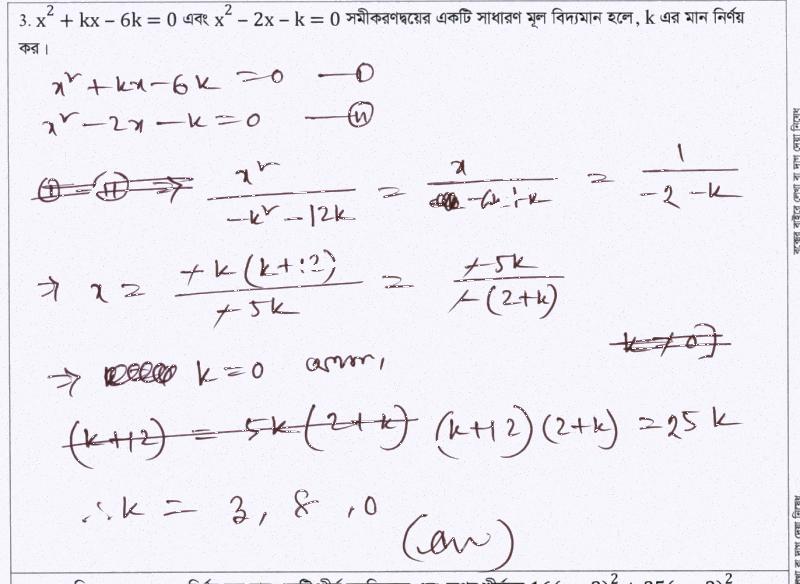 3. x² + kx - 6k = 0 এবং x² - 2x - k = 0 সমীকরণদ্বয়ের একটি সাধারণ মূল বিদ্যমান হলে, k এর মান নির্ণয়
কর।
x² + kx - 6k = 0 — ①
x² - 2x - k = 0 — ⑪
① - ⑪ ⇒ x² / (-k² - 12k) = x / (-6k + k) = 1 / (-2 - k)
⇒ x = +k(k+12) / +5k = +5k / -(2+k)
k ≠ 0]
⇒ k = 0 অথবা,
(k+12) = 5k(2+k) (k+12)(2+k) = 25k
∴ k = 3, 8, 0
(Ans)